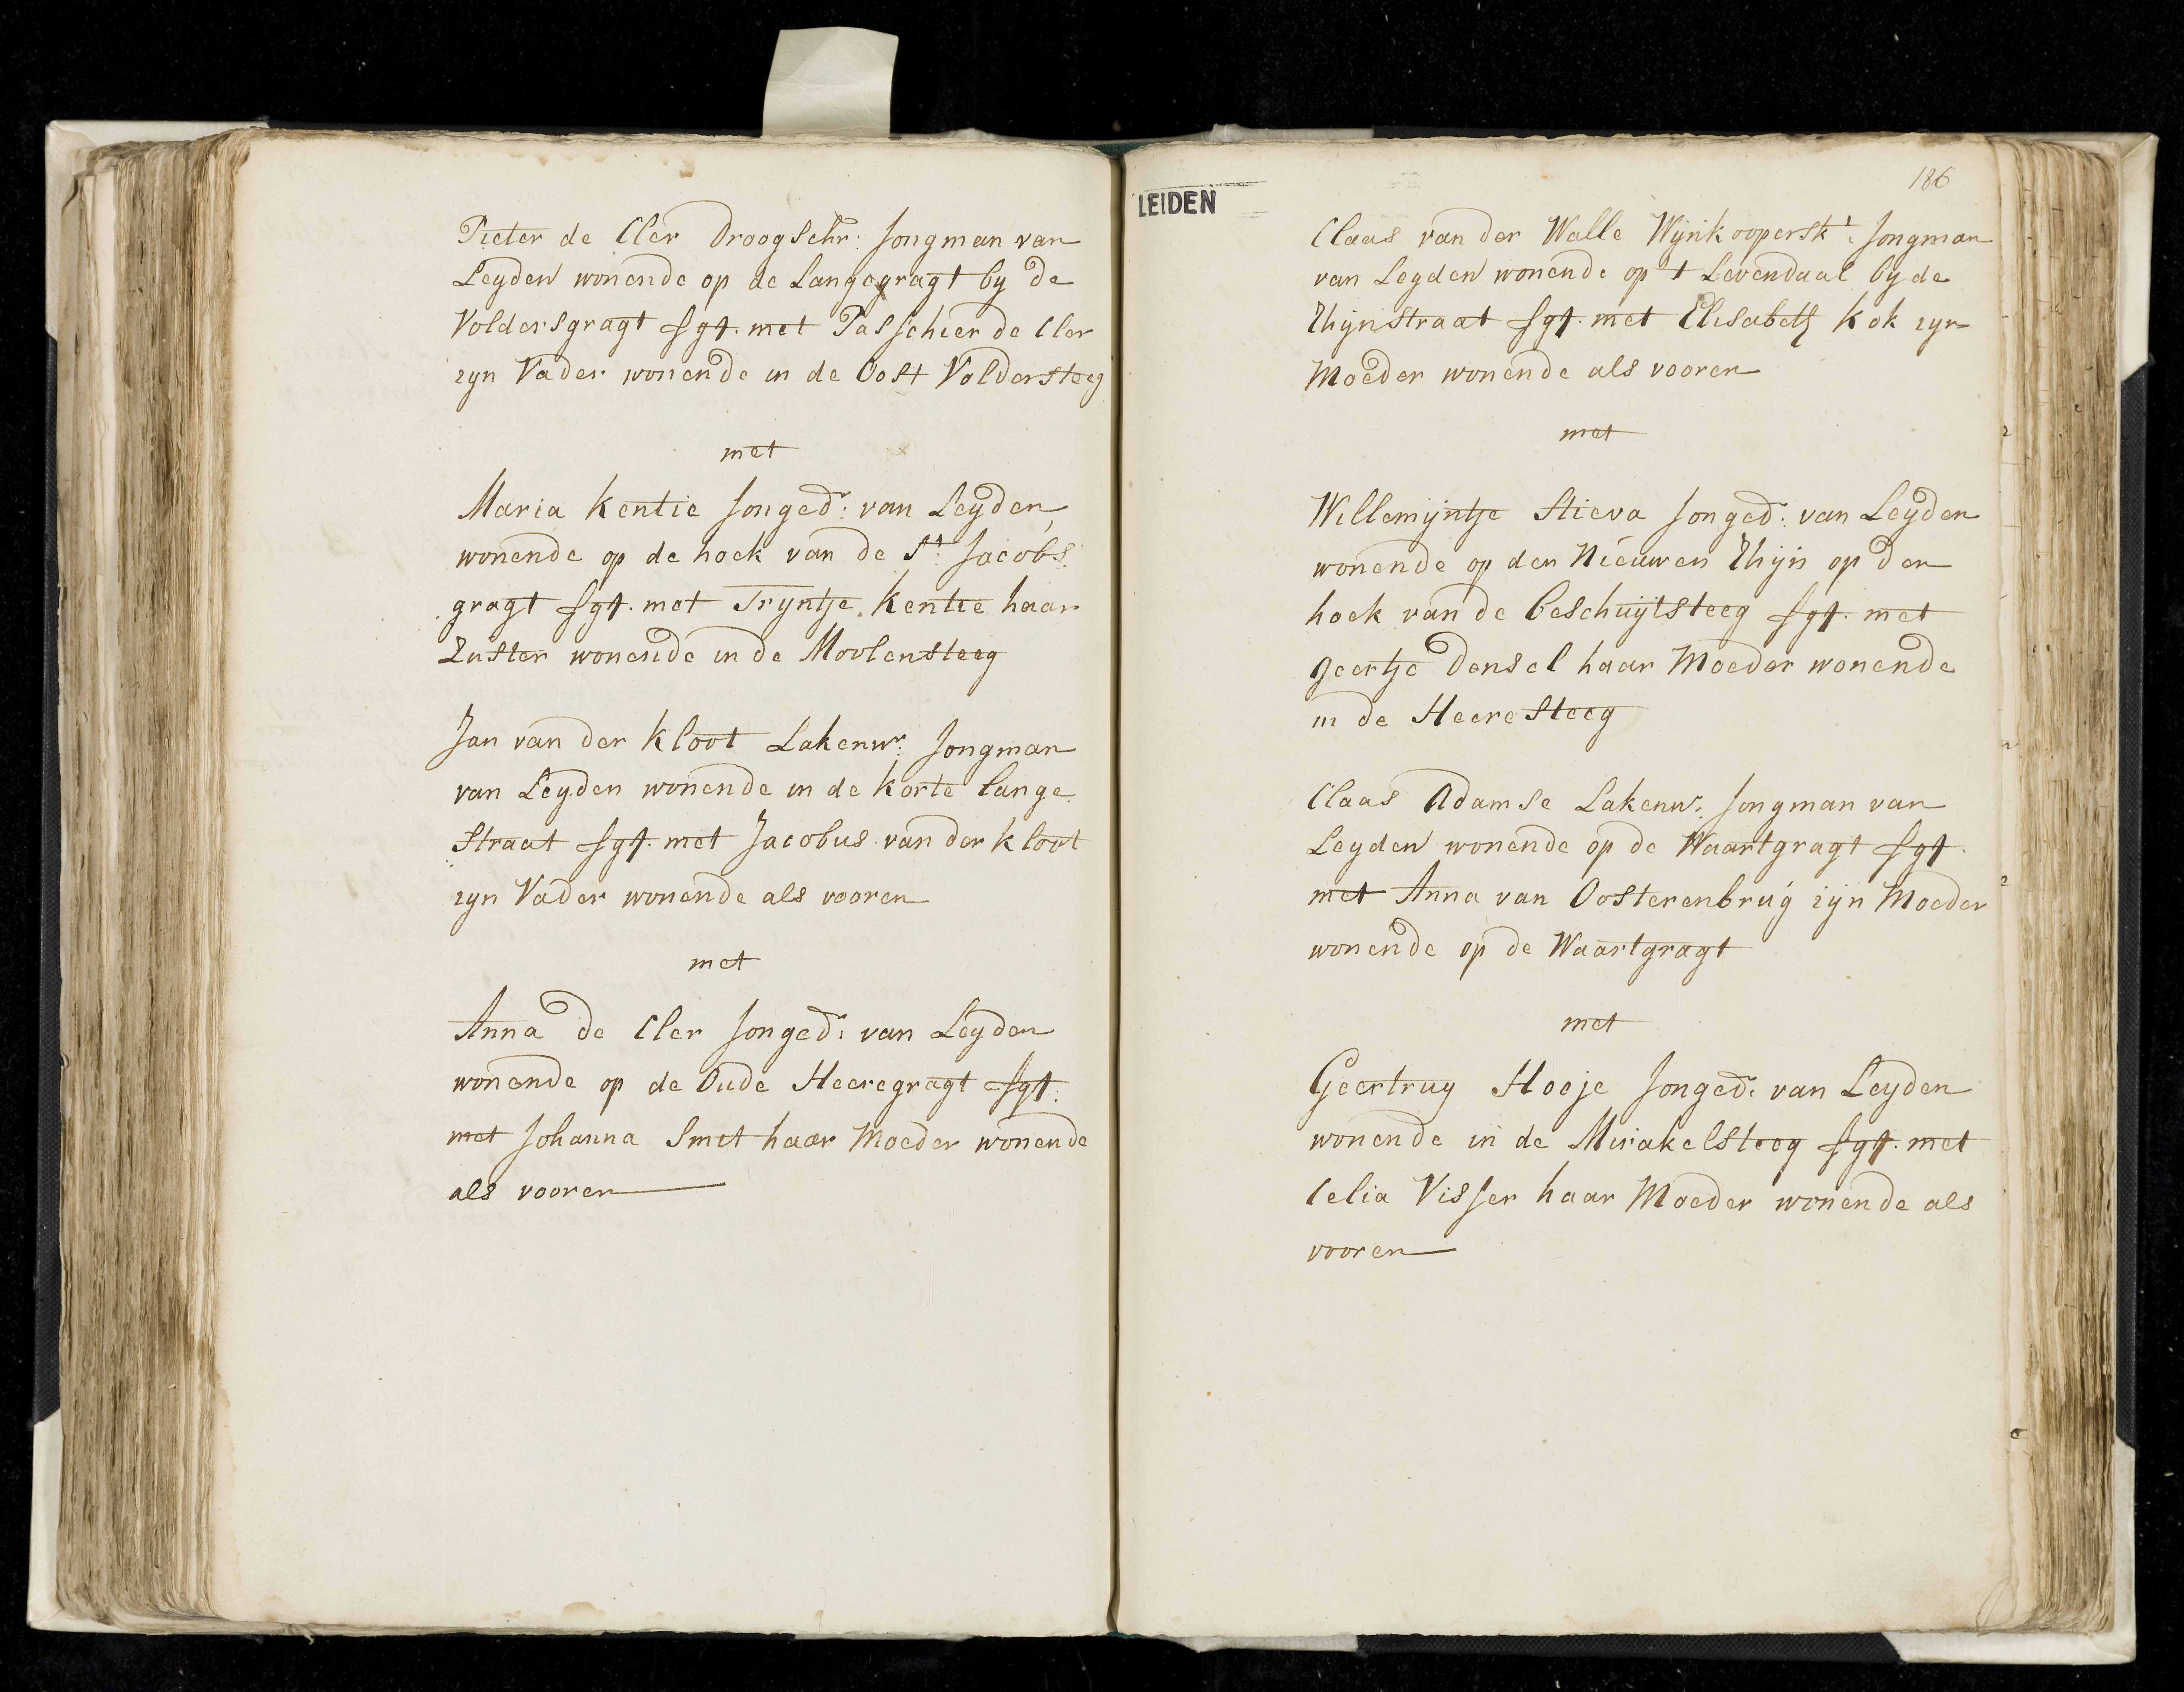 Pieter de Cler Droogschr: Jongman van
Leyden wonende op de Langegragt by de
Voldersgragt sgt. met Passchier de Cler
zyn Vader wonende in de Oost Voldersteeg
met
Maria Kentie Jonged.r van Leyden,
wonende op de hoek van de St. Jacobs
gragt sgt. met Tryntje Kentie haar
Zuster wonende in de Moolensteeg
Jan van der Kloot Lakenwr. Jongman
van Leyden wonende in de Korte lange
straat sgt. met Jacobus van der Kloot
zyn Vader wonende als vooren
met
Anna de Cler Jonged.r van Leyden
wonende op de Oude Heeregragt sgt:
met Johanna Smet haar Moeder wonende
als vooren
LEIDEN
186
Claas van der Walle Wynkoopersk.t Jongman
van Leyden wonende op 't Levendaal by de
Rhijnstraat sgt. met Elisabeth Kok zyn
Moeder wonende als vooren
met
Willemijntje Stieva Jonged.r van Leyden
wonende op den Nieuwen Rhijn op den
hoek van de beschuytsteeg sgt. met
Geertje Densel haar Moeder wonende
in de Heeresteeg
Claas Adamse Lakenwr. Jongman van
Leyden wonende op de Waartgragt sgt.
met Anna van Oosterenbrug zijn Moeder
wonende op de Waartgragt
met
Geertruy Hoeje Jonged.r van Leyden
wonende in de Mirakelsteeg sgt. met
Celia Visser haar Moeder wonende als
vooren